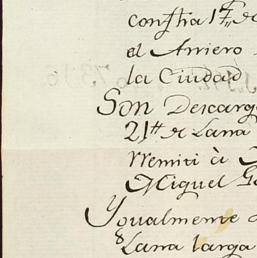 consta 17 de
el Arriero
la Ciudad
Son Descarg
21 de Lana
rremiti à
Miguel G
Ygualmente
8 Lana larga